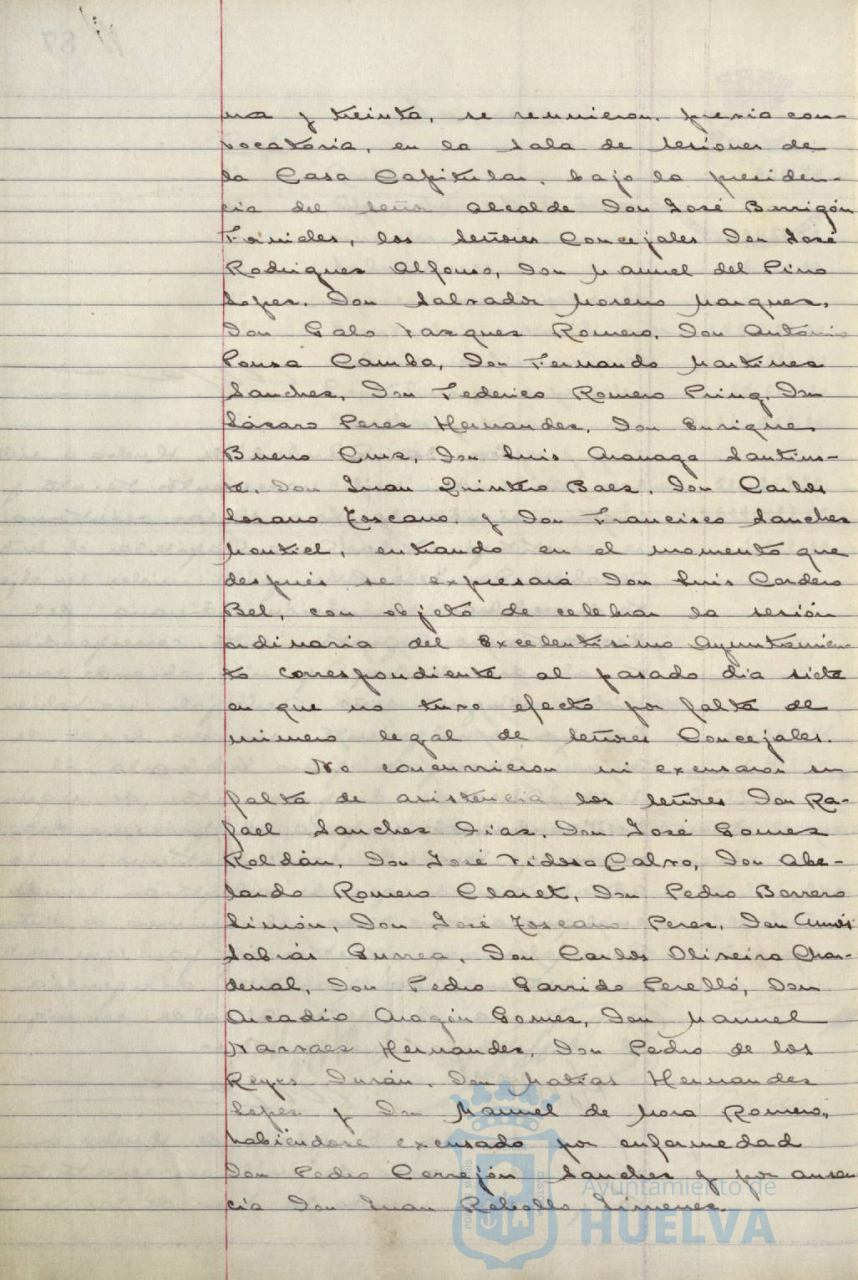 na y treinta, se reunieron, previa con-
vocatoria, en la Sala de Sesiones de
la Casa Capitular, bajo la presiden-
cia del Señor Alcalde Don José Barrigón
los Señores Concejales Don José
Rodriguez Alfonso, Don Manuel del Pino
Lopez, Don Salvador Moreno Marquez,
Don Galo Vazquez Romero, Don António
Ponsa Camba, Don Fernando Martinez
Sanchez, Don Federico Romero Pring, Don
Lázaro Perez Hernandez, Don Enrique
Bueno Cruz, Don Luis
Don Juan Quintero Baez, Don Carlos
Lozano Toscano, y Don Francisco Sanchez
Montiel, entrando en el momento que
después se expresará Don Luis Cordero
Bel, con objeto de celebrar la sesión
ordinaria del Excelentísimo Ayuntamien-
to correspondiente al pasado día siete
en que no tuvo efecto por falta de
número legal de Señores Concejales.
No concurrieron ni excusaron su
falta de asistencia los Señores Don Ra-
fael Sanchez Díaz, Don José Gomez
Roldán, Don José Vidosa Calvo, Don Abe-
lardo Romero Claret, Don Pedro Borrero
Limón, Don José Toscano Perez, Don Amós
Sabrás Gurrea, Don Carlos Oliveira Char-
denal, Don Pedro Garrido Perelló, Don
Arcadio Aragón Gomez, Don Manuel
Narvaez Hernandez, Don Pedro de los
Reyes Durán, Don Matías Hernandez
Lopez y Don Manuel de Mora Romero,
habiéndose excusado por enfermedad
Don Pedro Cerrejón Sanchez y por ausen
cia Don Juan Rebollo Jimenez.
Ayuntamiento de
HUELVA